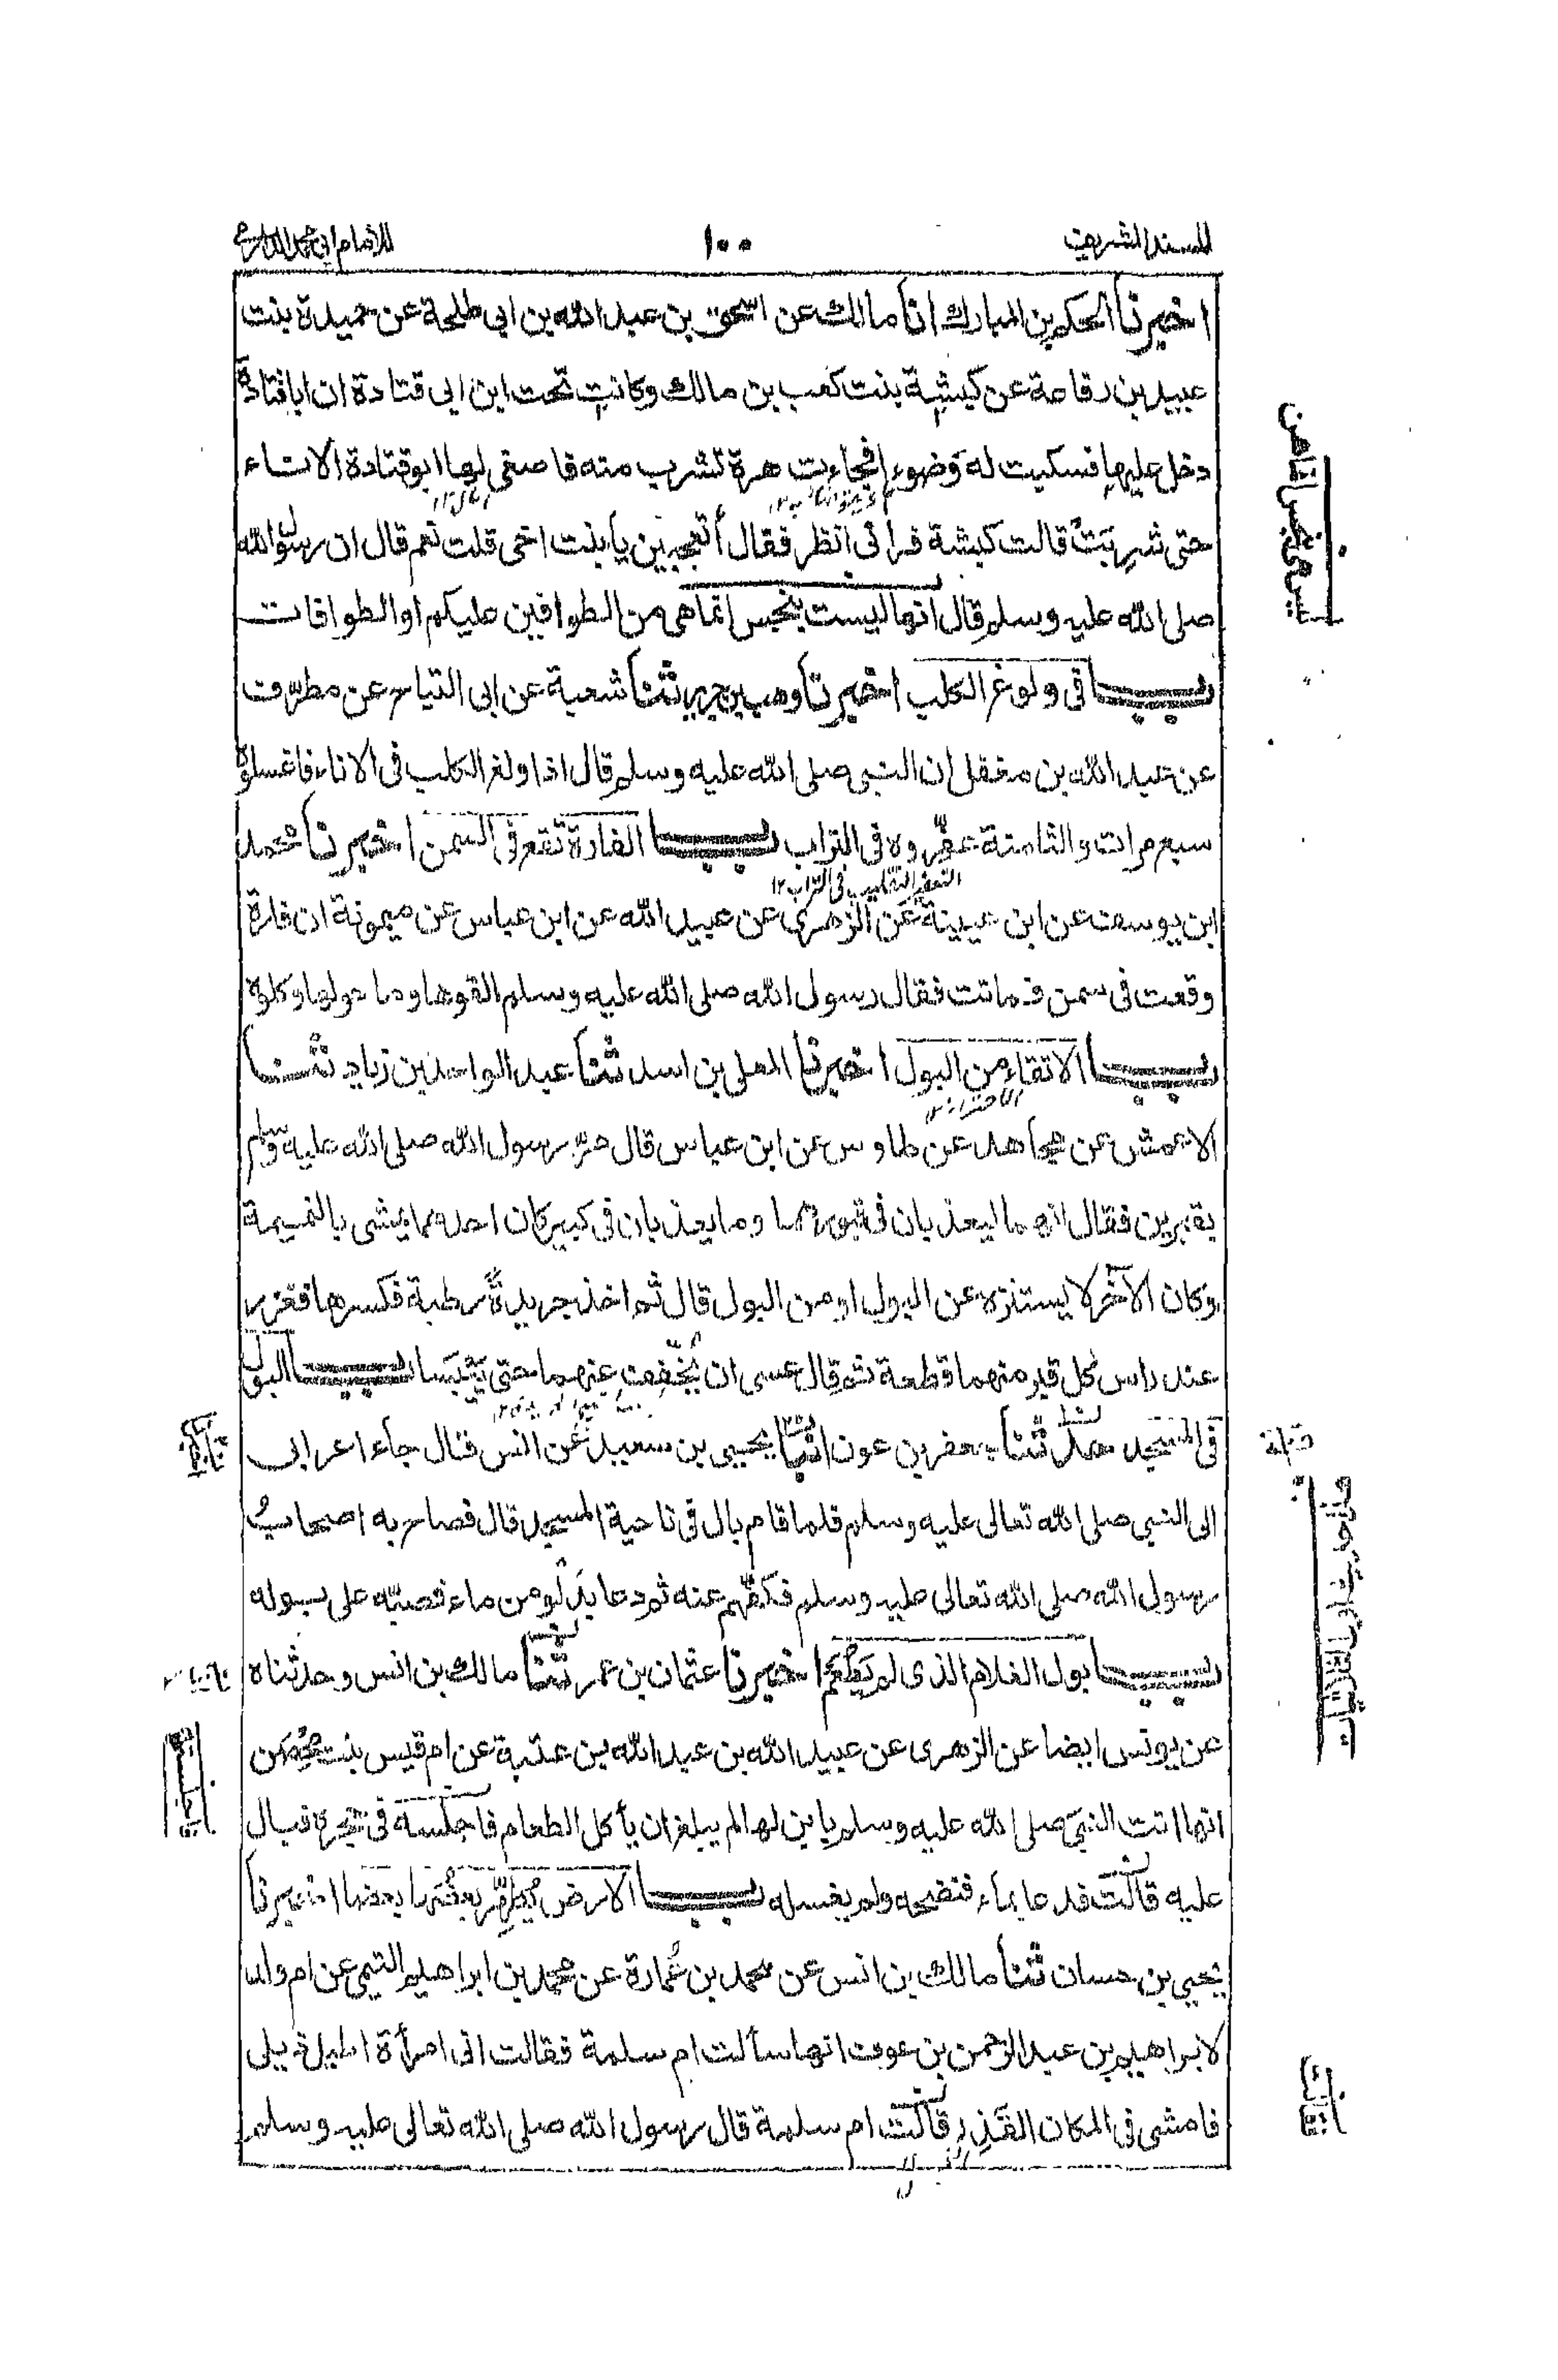 المسند الشريف
١٠٠
للامام ابي محمد الدارمي
اخبرنا الحكم بن المبارك انا مالك عن اسحق بن عبد الله بن ابي طلحة عن حميدة بنت
عبيد بن رفاعة عن كبشة بنت كعب بن مالك وكانت تحت ابن ابي قتادة ان ابا قتادة
دخل عليها فسكبت له وضوءا فجاءت هرة تشرب منه فاصغى لها ابو قتادة الاناء
حتى شربت قالت كبشة فرانى انظر فقال أتعجبين يا بنت اخى قلت نعم قال ان رسول الله
صلى الله عليه وسلم قال انها ليست بنجس انما هى من الطوافين عليكم او الطوافات
باب فى ولوغ الكلب اخبرنا وهب بن جرير ثنا شعبة عن ابى التياح عن مطرف
عن عبد الله بن مغفل ان النبى صلى الله عليه وسلم قال اذا ولغ الكلب فى الاناء فاغسلوه
سبع مرات والثامنة عفروه فى التراب باب الفارة تقع فى السمن اخبرنا محمد
التعفير التقليب فى التراب ١٢
ابن يوسف عن ابن عيينة عن الزهرى عن عبيد الله عن ابن عباس عن ميمونة ان فارة
وقعت فى سمن فماتت فقال رسول الله صلى الله عليه وسلم القوها وما حولها وكلوه
باب الاتقاء من البول اخبرنا المعلى بن اسد ثنا عبد الواحد بن زياد ثنا
الاعمش عن مجاهد عن طاوس عن ابن عباس قال مر رسول الله صلى الله عليه وسلم
بقبرين فقال انهما ليعذبان فى قبورهما وما يعذبان فى كبير كان احدهما يمشى بالنميمة
وكان الآخر لا يستنزه عن البول او من البول قال ثم اخذ جريدة رطبة فكسرها فغرز
عند راس كل قبر منهما قطعة ثم قال عسى ان يخفف عنهما حتى تيبسا باب البول
فى المسجد حدثنا جعفر بن عون انبا يحيى بن سعيد عن انس قال جاء اعرابى
الى النبى صلى الله تعالى عليه وسلم فلما قام بال فى ناحية المسجد قال فصاح به اصحاب
رسول الله صلى الله تعالى عليه وسلم فكفهم عنه ثم دعا بدلو من ماء فصبه على بوله
باب بول الغلام الذى لم يطعم اخبرنا عثمان بن عمر ثنا مالك بن انس وحدثناه
عن يونس ايضا عن الزهرى عن عبيد الله بن عبد الله بن عتبة عن ام قيس بنت محصن
انها اتت النبى صلى الله عليه وسلم بابن لها لم يبلغ ان يأكل الطعام فاجلسه فى حجره فبال
عليه قالت فدعا بماء فنضحه ولم يغسله باب الارض يطهر بعضها بعضا اخبرنا
يحيى بن حسان ثنا مالك بن انس عن محمد بن عمارة عن محمد بن ابراهيم التيمى عن ام ولد
لابراهيم بن عبد الرحمن بن عوف انها سألت ام سلمة فقالت انى امرأة اطيل ذيلى
فامشى فى المكان القذر قالت ام سلمة قال رسول الله صلى الله تعالى عليه وسلم